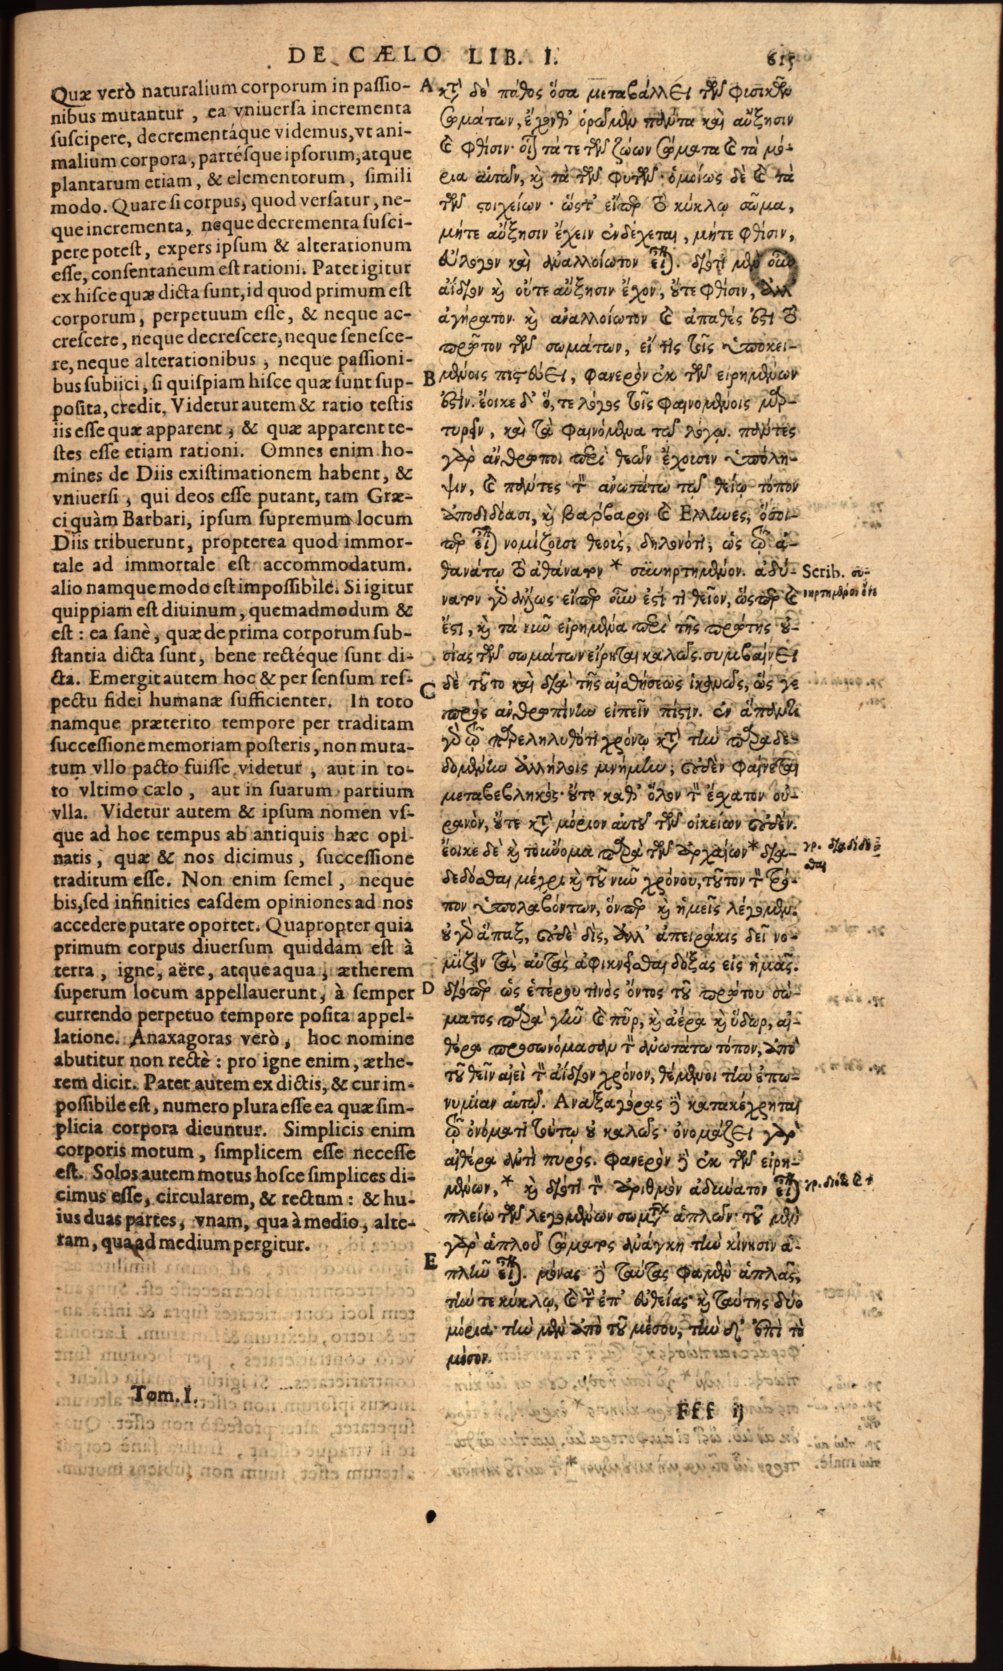 DE CÆLO LIB. I. 615
Quæ verò naturalium corporum in passio-
nibus mutantur, ea vniuersa incrementa
suscipere, decrementáque videmus, vt ani-
malium corpora, partésque ipsorum, atque
plantarum etiam, & elementorum, simili
modo. Quare si corpus, quod versatur, ne-
que incrementa, neque decrementa susci-
pere potest, expers ipsum & alterationum
esse, consentaneum est rationi. Patet igitur
ex hisce quæ dicta sunt, id quod primum est
corporum, perpetuum esse, & neque ac-
crescere, neque decrescere, neque senesce-
re, neque alterationibus, neque passioni-
bus subiici, si quispiam hisce quæ sunt sup-
posita, credit. Videtur autem & ratio testis
iis esse quæ apparent, & quæ apparent te-
stes esse etiam rationi. Omnes enim ho-
mines de Diis existimationem habent, &
vniuersi, qui deos esse putant, tam Græ-
ci quàm Barbari, ipsum supremum locum
Diis tribuerunt, propterea quod immor-
tale ad immortale est accommodatum.
alio namque modo est impossibile. Si igitur
quippiam est diuinum, quemadmodum &
est: ea sanè, quæ de prima corporum sub-
stantia dicta sunt, bene rectéque sunt di-
cta. Emergit autem hoc & per sensum res-
pectu fidei humanæ sufficienter. In toto
namque præterito tempore per traditam
successione memoriam posteris, non muta-
tum vllo pacto fuisse videtur, aut in to-
to vltimo cælo, aut in suarum partium
vlla. Videtur autem & ipsum nomen vs-
que ad hoc tempus ab antiquis hæc opi-
natis, quæ & nos dicimus, successione
traditum esse. Non enim semel, neque
bis, sed infinities easdem opiniones ad nos
accedere putare oportet. Quapropter quia
primum corpus diuersum quiddam est à
terra, igne, aëre, atque aqua, ætherem
superum locum appellauerunt, à semper
currendo perpetuo tempore posita appel-
latione. Anaxagoras verò, hoc nomine
abutitur non rectè: pro igne enim, æthe-
rem dicit. Patet autem ex dictis, & cur im-
possibile est, numero plura esse ea quæ sim-
plicia corpora dicuntur. Simplicis enim
corporis motum, simplicem esse necesse
est. Solos autem motus hosce simplices di-
cimus esse, circularem, & rectum: & hu-
ius duas partes, vnam, qua à medio, alte-
ram, qua ad medium pergitur.
Tom. I.
A
B
C
D
E
κτ̀ δὲ πάθος ὅσα μεταβάλλει τῶν φυσικῶν
σωμάτων, ἔχονθ' ὁρῶμεν πάντα καὶ αὔξησιν
καὶ φθίσιν· οἷον τά τε τῶν ζώων σώματα καὶ τὰ μό-
ρια αὐτῶν, καὶ τὰ τῶν φυτῶν· ὁμοίως δὲ καὶ τὰ
τῶν στοιχείων· ὥστ' εἴπερ τὸ κύκλῳ σῶμα,
μήτε αὔξησιν ἔχειν ἐνδέχεται, μήτε φθίσιν,
εὔλογον καὶ ἀναλλοίωτον εἶναι. διότι μὲν οὖν
ἀΐδιον καὶ οὔτε αὔξησιν ἔχον, οὔτε φθίσιν, ἀλλ'
ἀγήρατον καὶ ἀναλλοίωτον καὶ ἀπαθές ἐστι τὸ
πρῶτον τῶν σωμάτων, εἴ τις τοῖς ὑποκει-
μένοις πιστεύει, φανερὸν ἐκ τῶν εἰρημένων
ἐστίν. ἔοικε δ' ὅ, τε λόγος τοῖς φαινομένοις μαρ-
τυρεῖν, καὶ τὰ φαινόμενα τῷ λόγῳ. πάντες
γὰρ ἄνθρωποι περὶ θεῶν ἔχουσιν ὑπόλη-
ψιν, καὶ πάντες τὸν ἀνωτάτω τῷ θείῳ τόπον
ἀποδιδόασι, καὶ βάρβαροι καὶ Ἕλληνες, ὅσοι-
περ εἶναι νομίζουσι θεούς, δηλονότι, ὡς τῷ ἀ-
θανάτῳ τὸ ἀθάνατον * συνηρτημένον. ἀδύ-
νατον γὰρ ἄλλως· εἴπερ οὖν ἐστί τι θεῖον, ὥσπερ καὶ
ἔστι, καὶ τὰ νῦν εἰρημένα περὶ τῆς πρώτης οὐ-
σίας τῶν σωμάτων εἴρηται καλῶς. συμβαίνει
δὲ τοῦτο καὶ διὰ τῆς αἰσθήσεως ἱκανῶς, ὥς γε
πρὸς ἀνθρωπίνην εἰπεῖν πίστιν. ἐν ἅπαντι
γὰρ τῷ παρεληλυθότι χρόνῳ κτ̀ τὴν παραδε-
δομένην ἀλλήλοις μνήμην, οὐδὲν φαίνεται
μεταβεβληκός· οὔτε καθ' ὅλον τὸν ἔσχατον οὐ-
ρανὸν, οὔτε κτ̀ μόριον αὐτοῦ τῶν οἰκείων οὐδέν.
ἔοικε δὲ καὶ τοὔνομα παρὰ τῶν ἀρχαίων * δια-
δεδόσθαι μέχρι καὶ τοῦ νῦν χρόνου, τοῦτον τὸν τρό-
πον ὑπολαβόντων, ὅνπερ καὶ ἡμεῖς λέγομεν.
οὐ γὰρ ἅπαξ, οὐδὲ δὶς, ἀλλ' ἀπειράκις δεῖ νο-
μίζειν τὰς αὐτὰς ἀφικνεῖσθαι δόξας εἰς ἡμᾶς.
διόπερ ὡς ἑτέρου τινὸς ὄντος τοῦ πρώτου σώ-
ματος παρὰ γῆν καὶ πῦρ, καὶ ἀέρα καὶ ὕδωρ, αἰ-
θέρα προσωνόμασαν τὸν ἀνωτάτω τόπον, ἀπὸ
τοῦ θεῖν ἀεὶ τὸν ἀΐδιον χρόνον, θέμενοι τὴν ἐπω-
νυμίαν αὐτῷ. Ἀναξαγόρας δὲ κατακέχρηται
τῷ ὀνόματι τούτῳ οὐ καλῶς· ὀνομάζει γὰρ
αἰθέρα ἀντὶ πυρός. Φανερὸν δὲ ἐκ τῶν εἰρη-
μένων, * καὶ διότι τὸν ἀριθμὸν ἀδύνατον εἶναι
πλείω τῶν λεγομένων σωμάτων ἁπλῶν· τοῦ μὲν
γὰρ ἁπλοῦ σώματος ἀνάγκη τὴν κίνησιν ἁ-
πλῆν εἶναι. μόνας δὲ ταύτας φαμὲν ἁπλᾶς,
τήν τε κύκλῳ, καὶ τὴν ἐπ' εὐθείας· καὶ ταύτης δύο
μόρια· τὴν μὲν ἀπὸ τοῦ μέσου, τὴν δ' ἐπὶ τὸ
μέσον.
Scrib. συ-
νηρτημένον ὄν
γρ. διαδίδο-
σθαι
γρ. διὰ τί
FFf ij